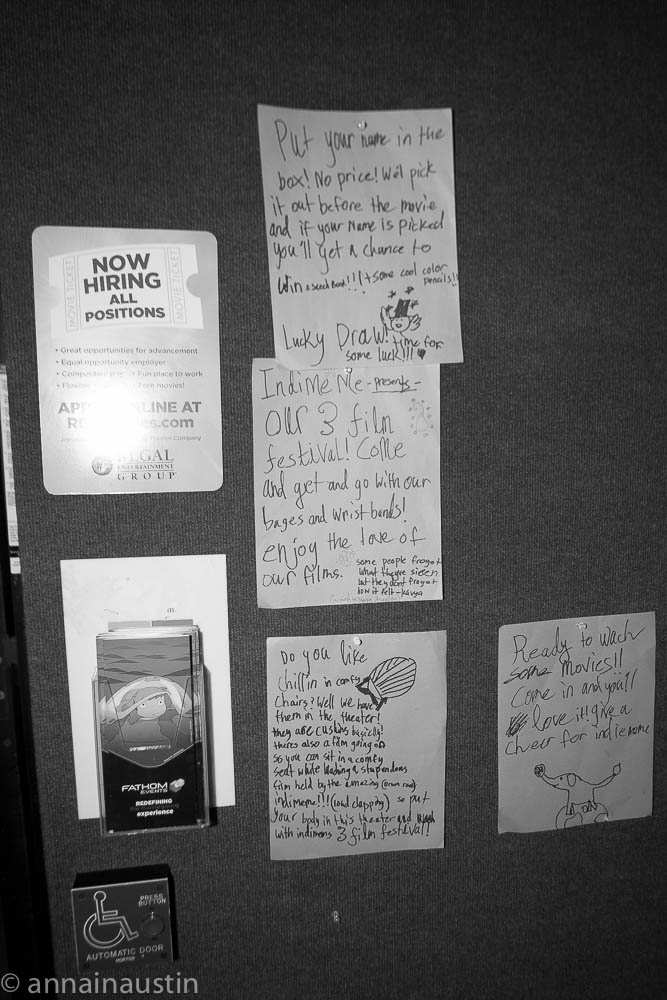 Put your name in the
box! No price! We'll pick
it out before the movie
and if your Name is picked
you'll get a chance to
win a seed Bomb!!! + some cool color
pencils!!
Lucky Draw! time for
some luck!!!
NOW
HIRING
ALL
POSITIONS
MOVIE TICKET
MOVIE TICKET
• Great opportunities for advancement
• Equal opportunity employer
• Competitive pay • Fun place to work
• Flexible Free movies!
ONLINE AT
.com
REGAL
ENTERTAINMENT
GROUP
IndiMe Me - presents -
our 3 film
festival! Come
and get and go with our
bages and wrist bands!
enjoy the love of
our films.
some people frogot
what they're sieen
but they dont frogot
how it felt - kavya
Do you like
chillin in comfy
chairs? Well we have
them in the theater!
they are cushins basicly!
theres also a film going on
so you can sit in a comfy
seat while a stupendous
film held by the amazing (drum roll)
indimeme!!! (loud clapping) so put
your body in this theater and
with indimems 3 film festival!
Ready to wach
some movies!!
Come in and you'll
love it! give a
cheer for indiememe
FATHOM
EVENTS
REDEFINING
experience
PRESS
BUTTON
AUTOMATIC DOOR
HORTON
© annainaustin